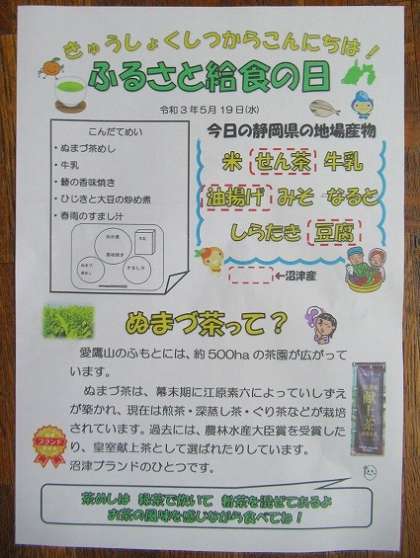 きゅうしょくしつからこんにちは！
ふるさと給食の日
令和３年５月１９日(水)
こんだてめい
・ぬまづ茶めし
・牛乳
・鯵の香味焼き
・ひじきと大豆の炒め煮
・春雨のすまし汁
今日の静岡県の地場産物
米 せん茶 牛乳
油揚げ みそ なると
しらたき 豆腐
←沼津産
ぬまづ茶って？
愛鷹山のふもとには、約500haの茶園が広がって
います。
ぬまづ茶は、幕末期に江原素六によっていしずえ
が築かれ、現在は煎茶・深蒸し茶・ぐり茶などが栽培
されています。過去には、農林水産大臣賞を受賞した
り、皇室献上茶として選ばれたりしています。
沼津ブランドのひとつです。
ブランド
献上茶
茶めしは 緑茶で炊いて 粉茶を混ぜてあるよ
お茶の風味を感じながら食べてね！